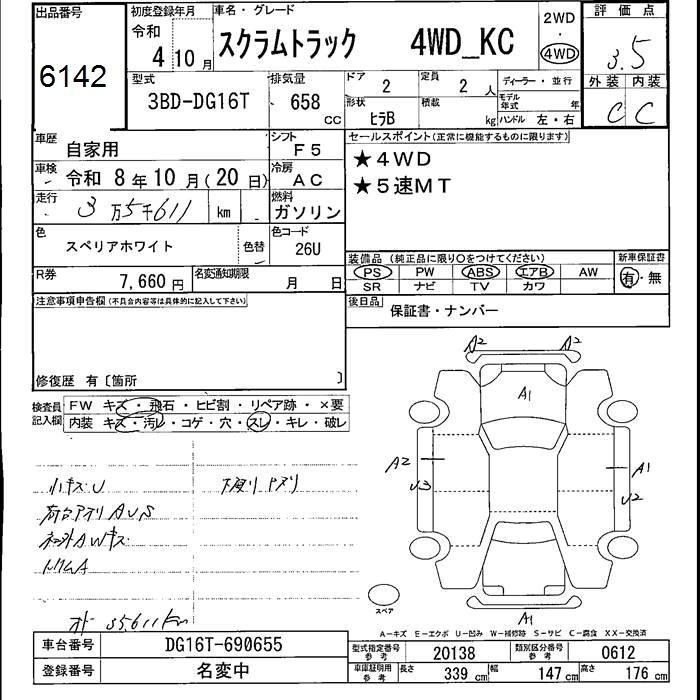 出品番号
6142
初度登録年月
令和
4 10 月
車名・グレード
スクラムトラック 4WD_KC
2WD
・
4WD
評価点
3.5
外装 内装
C C
型式
3BD-DG16T
排気量
658 CC
ドア 2
定員 2 人
形状 ヒラB
積載 kg
ディーラー・並行
モデル年式 年
ハンドル 左・右
車歴 自家用
シフト F5
車検 令和 8年10月(20日)
冷房 AC
走行 3万5千611 km
燃料 ガソリン
色 スペリアホワイト
色替
色コード 26U
R券 7,660 円
名変通知期限 月 日
セールスポイント(正常に機能するものに限ります)
★4WD
★5速MT
装備品 (純正品に限り○をつけてください)
新車保証書
PS PW ABS エアB AW
SR ナビ TV カワ
有・無
後日品 保証書・ナンバー
注意事項申告欄(不具合内容等は具体的に記入して下さい)
修復歴 有〔箇所 〕
検査員記入欄
FW キズ・飛石・ヒビ割・リペア跡・×要
内装 キズ・汚レ・コゲ・穴・スレ・キレ・破レ
小キズU
荷台アオリAUS
下廻りサビ
オド 35,611km
A2 A2
A1
A2
U3
A1
U2
A1
スペア
A−キズ E−エクボ U−凹み W−補修跡 S−サビ C−腐食 XX−交換済
車台番号 DG16T-690655
登録番号 名変中
型式指定番号 参考 20138
類別区分番号 参考 0612
車庫証明用 参考
長さ 339 cm
幅 147 cm
高さ 176 cm